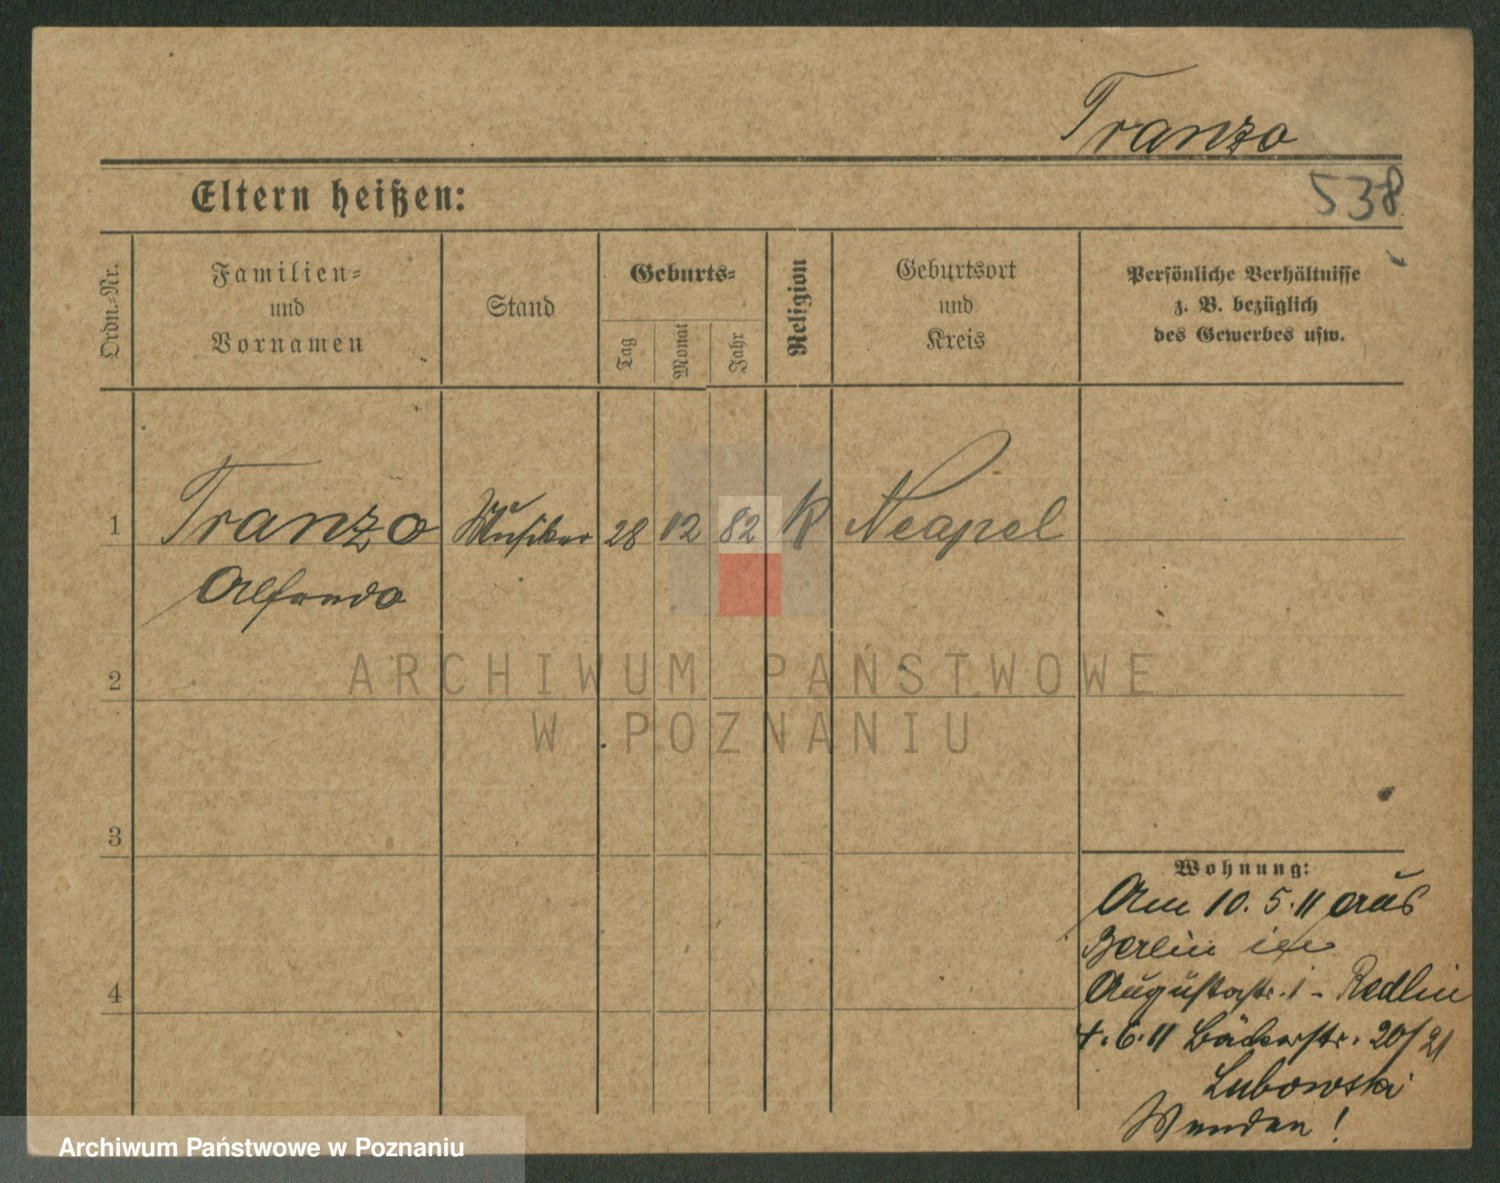 Tranzo
538
Eltern heißen:
Ordn.-Nr.
Familien-
und
Vornamen
Stand
Geburts-
Tag
Monat
Jahr
Religion
Geburtsort
und
Kreis
Persönliche Verhältnisse
z. B. bezüglich
des Gewerbes usw.
1 Tranzo Musiker 28 12 82 K Neapel
Alfredo
2
3
4
Wohnung:
Am 10. 5. 11 aus
Berlin
Augustastr. 1 - Redlin
6. 11 Bäckerstr. 20/21
Lubowski
Wenden!
ARCHIWUM PAŃSTWOWE
W POZNANIU
Archiwum Państwowe w Poznaniu